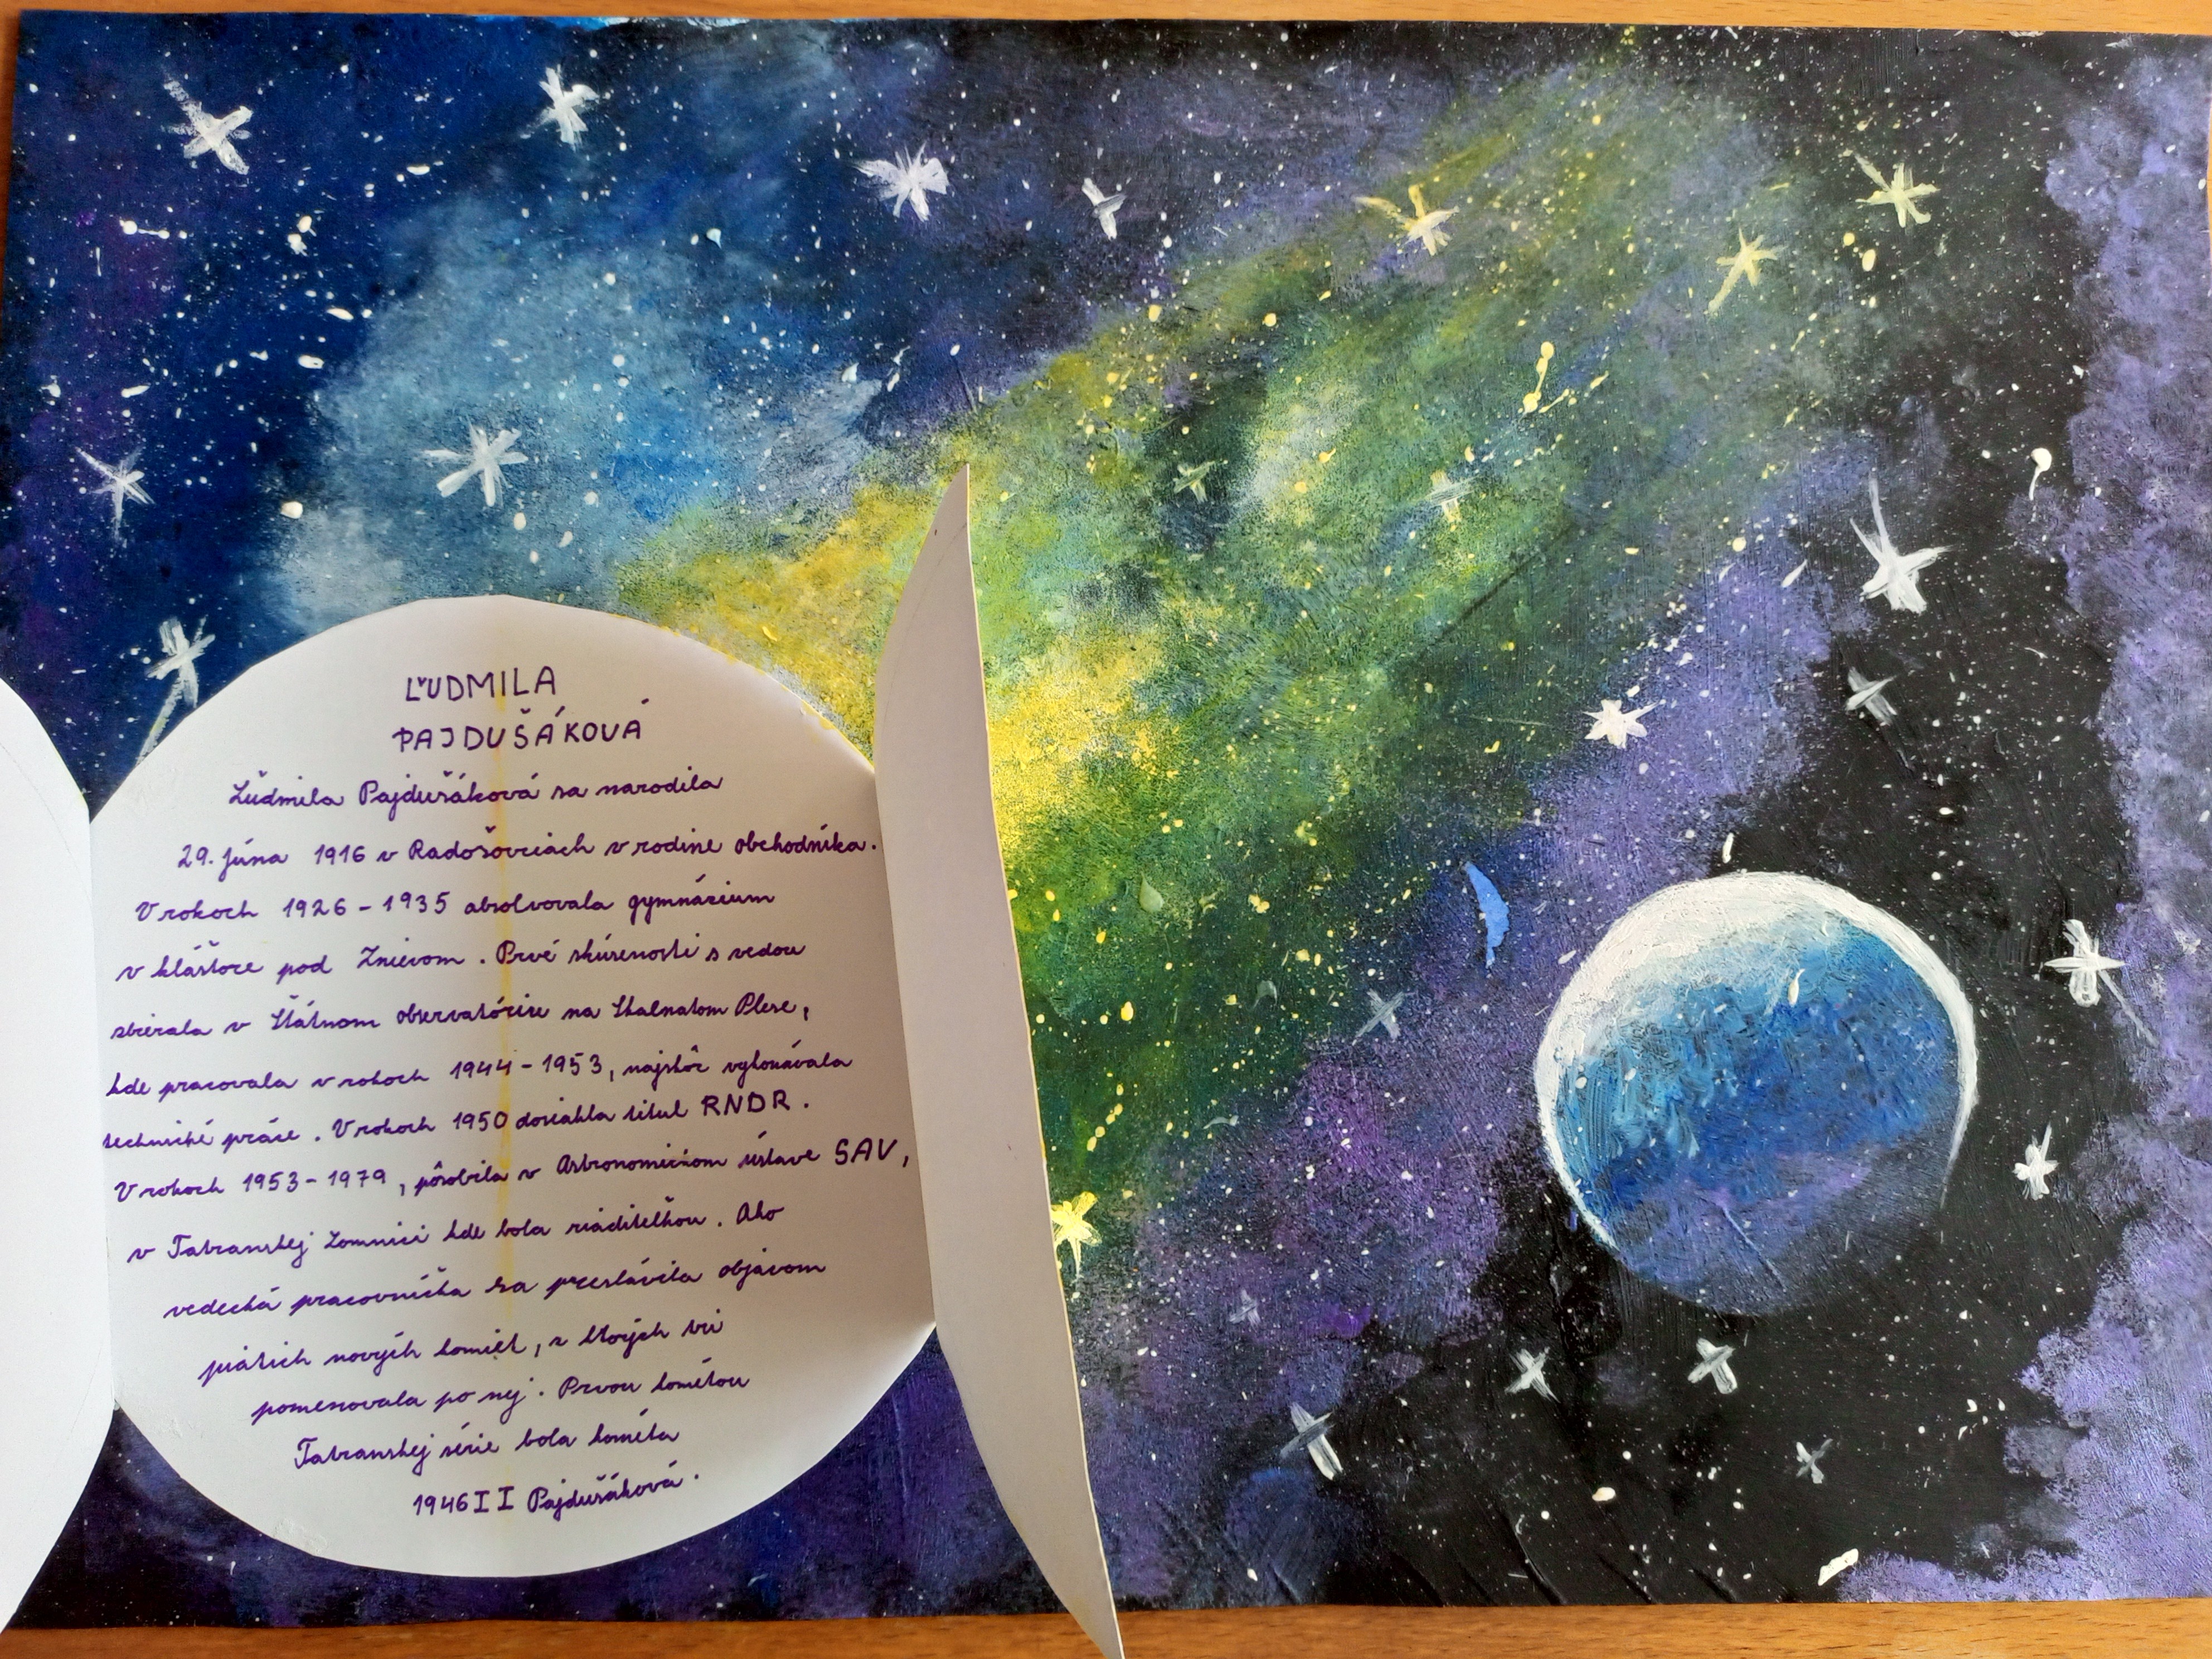 ĽUDMILA
PAJDUŠÁKOVÁ
Ľudmila Pajdušáková sa narodila
29. júna 1916 v Radošovciach v rodine obchodníka.
V rokoch 1926 - 1935 absolvovala gymnázium
v kláštore pod Znievom. Prvé skúsenosti s vedou
zbierala v Štátnom observatóriu na Skalnatom Plese,
kde pracovala v rokoch 1944 - 1953, najskôr vykonávala
technické práce. V rokoch 1950 dosiahla titul RNDR.
V rokoch 1953 - 1979, pôsobila v Astronomickom ústave SAV,
v Tatranskej Lomnici kde bola riaditeľkou. Ako
vedecká pracovníčka sa preslávila objavom
piatich nových komét, z ktorých tri
pomenovala po nej. Prvou kométou
Tatranskej série bola kométa
1946 II Pajdušáková.